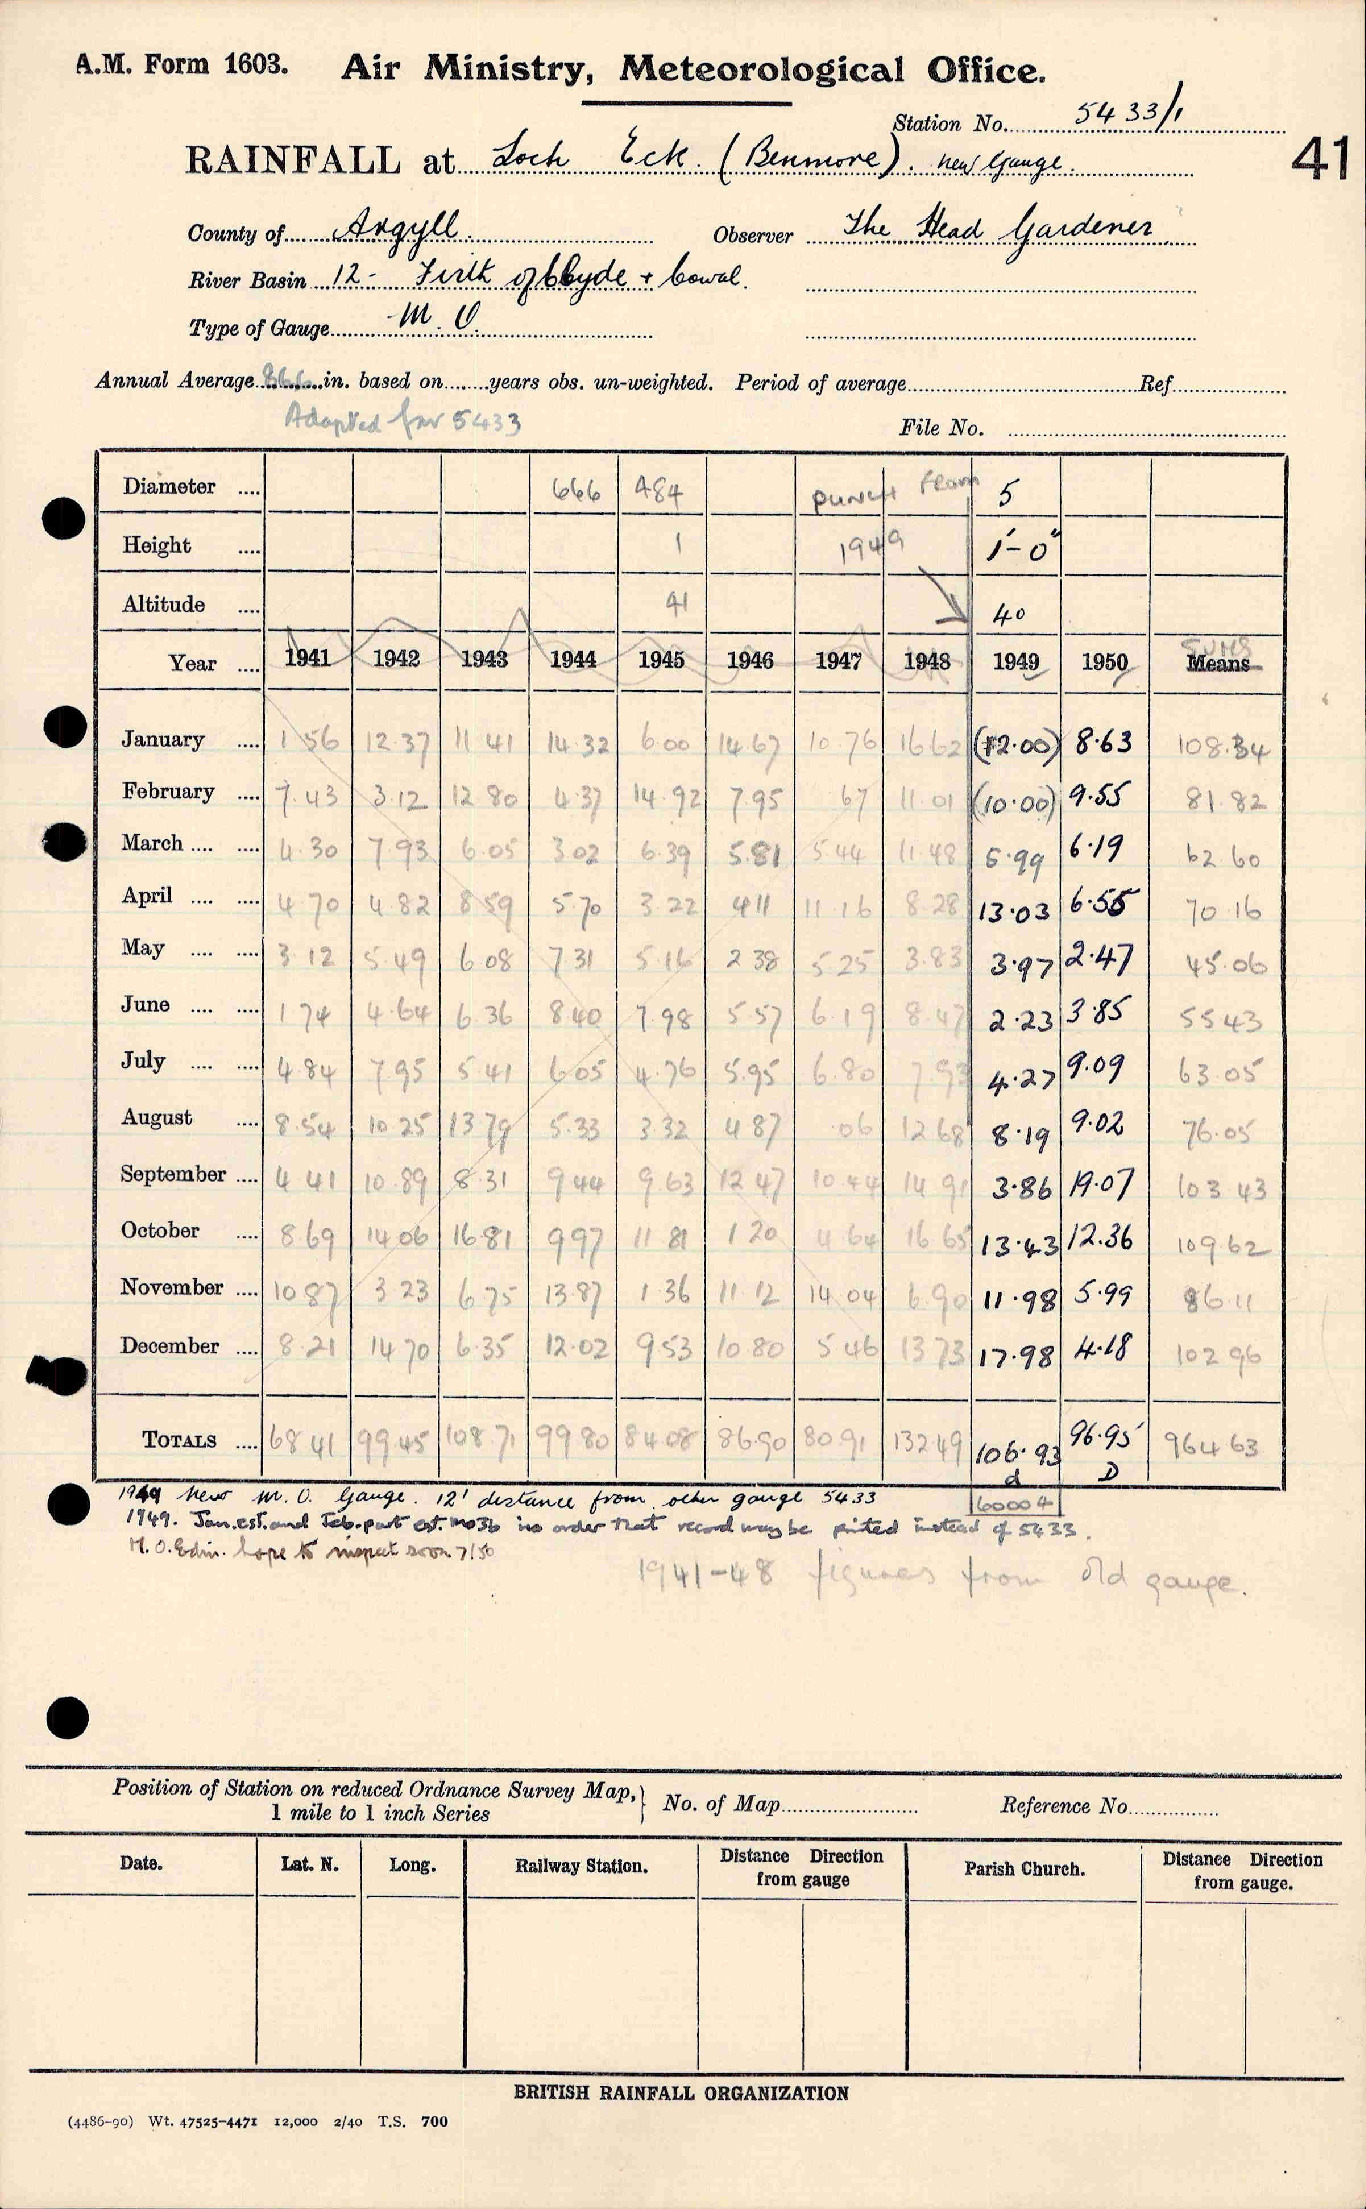 A.M. Form 1603. Air Ministry, Meteorological Office.
Station No. 5433/1
RAINFALL at Loch Eck. (Benmore). new Gauge.
41
County of Argyll Observer The Head Gardener
River Basin 12 - Firth of Clyde + Cowal.
Type of Gauge M. O.
Annual Average 86.6 in. based on years obs. un-weighted. Period of average Ref
Adopted for 5433
File No.
Diameter 666 484 PUNCH FROM 5
Height 1 1949 1'-0"
Altitude 41 40
Year 1941 1942 1943 1944 1945 1946 1947 1948 1949 1950 Means SUMS
January 1 56 12.37 11 41 14.32 6.00 14 67 10.76 16 62 (12.00) 8.63 108.34
February 7.43 3.12 12 80 4.37 14.92 7.95 67 11.01 (10.00) 9.55 81.82
March 4.30 7.93 6.05 3.02 6.39 5.81 5.44 11.48 5.99 6.19 62 60
April 4.70 4.82 8 59 5.70 3.22 4 11 11 16 8.28 13.03 6.55 70 16
May 3.12 5.49 6 08 7 31 5.16 2 38 5.25 3.83 3.97 2.47 45.06
June 1 74 4.64 6.36 8.40 7.98 5.57 6.19 8.47 2.23 3.85 55 43
July 4.84 7.95 5.41 6.05 4.76 5.95 6.80 7.93 4.27 9.09 63.05
August 8.54 10 25 13 79 5.33 3.32 4 87 .06 12 68 8.19 9.02 76.05
September 4 41 10.89 8.31 9 44 9.63 12 47 10.44 14 91 3.86 19.07 103 43
October 8.69 14 06 16.81 9 97 11 81 1 20 4.64 16 65 13.43 12.36 109.62
November 10 87 3 23 6.75 13.87 1.36 11 12 14 04 6.90 11.98 5.99 86 11
December 8.21 14 70 6.35 12.02 9 53 10 80 5 46 13 73 17.98 4.18 102 96
TOTALS 68 41 99 45 108.71 99 80 84 08 86.90 80.91 132.49 106.93 96.95 964 63
d D
60004
1949 New M. O. Gauge. 12' distance from other gauge 5433
1949. Jan. est. and Feb. part est. in order that record may be printed instead of 5433.
M. O. Edin. hope to inspect soon 7/50
1941-48 figures from old gauge.
Position of Station on reduced Ordnance Survey Map, 1 mile to 1 inch Series No. of Map Reference No.
Date. Lat. N. Long. Railway Station. Distance Direction from gauge Parish Church. Distance Direction from gauge.
BRITISH RAINFALL ORGANIZATION
(4486-90) Wt. 47525-4471 12,000 2/40 T.S. 700